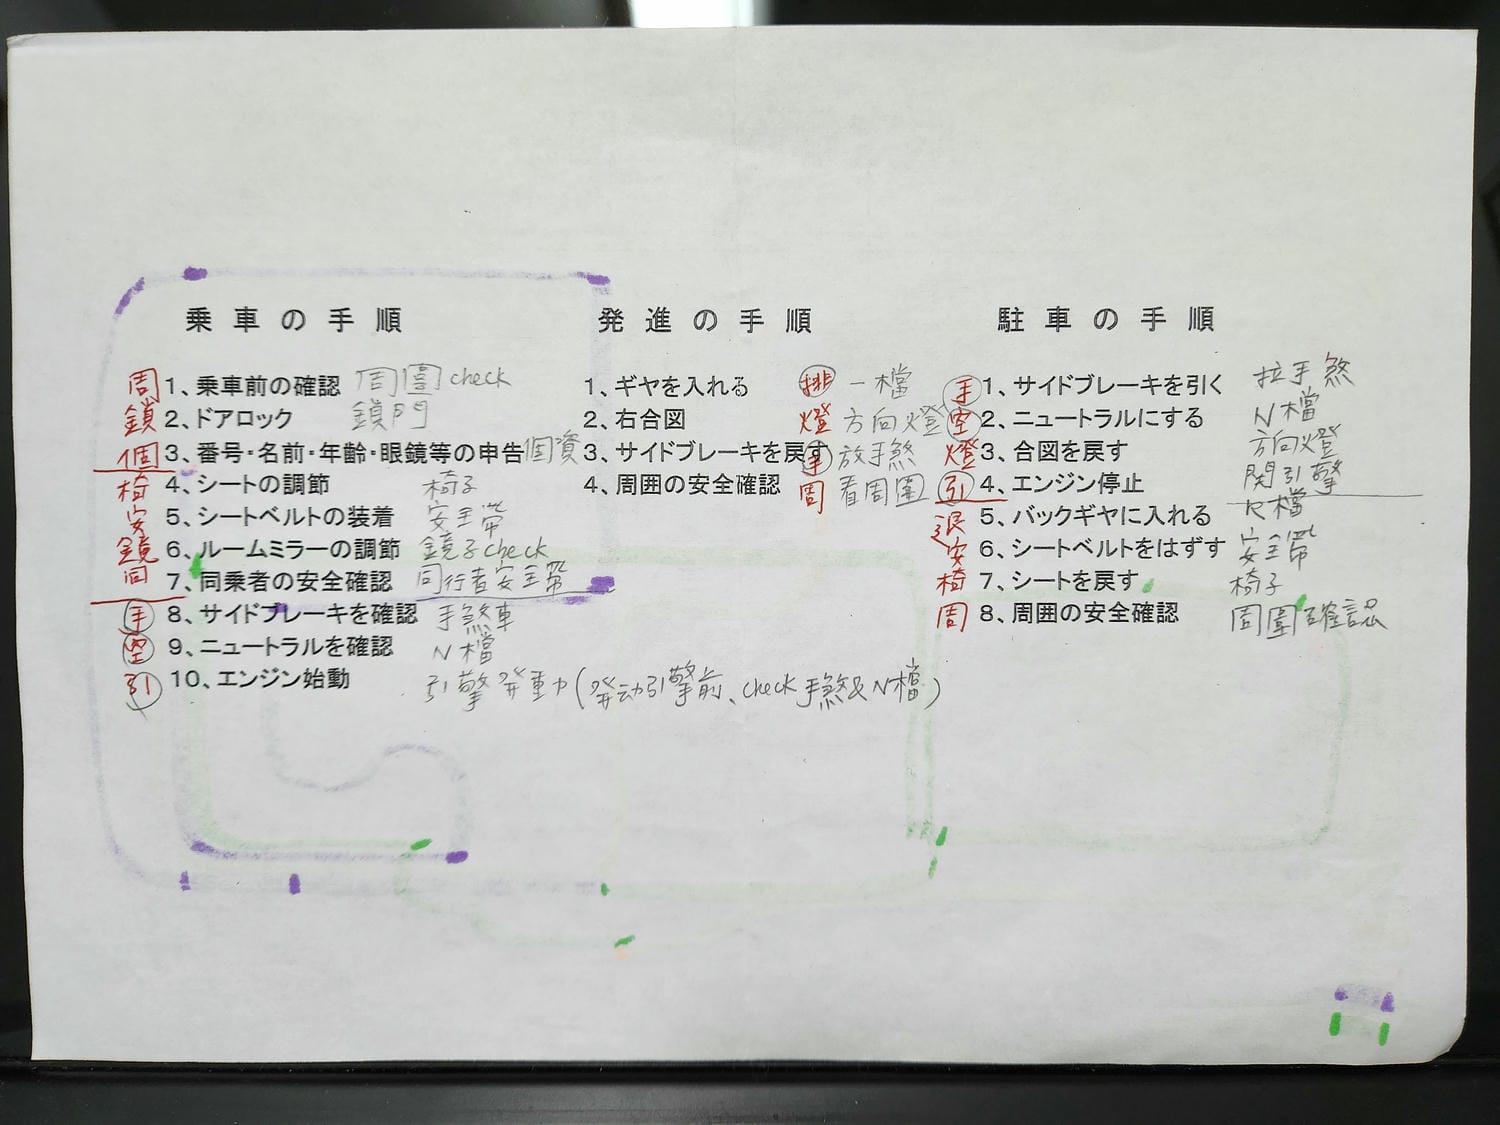 乗車の手順
周 1、乗車前の確認 周圍check
鎖 2、ドアロック 鎖門
個 3、番号・名前・年齢・眼鏡等の申告 個資
椅 4、シートの調節 椅子
安 5、シートベルトの装着 安全帶
鏡 6、ルームミラーの調節 鏡子check
同 7、同乗者の安全確認 同行者安全帶
手 8、サイドブレーキを確認 手煞車
空 9、ニュートラルを確認 N檔
引 10、エンジン始動 引擎発動(発动引擎前、check手煞&N檔)
発進の手順
1、ギヤを入れる 排 一檔
2、右合図 燈 方向燈
3、サイドブレーキを戻す 手 放手煞
4、周囲の安全確認 周 看周圍
駐車の手順
手 1、サイドブレーキを引く 拉手煞
空 2、ニュートラルにする N檔
燈 3、合図を戻す 方向燈
引 4、エンジン停止 関引擎
退 5、バックギヤに入れる R檔
安 6、シートベルトをはずす 安全帶
椅 7、シートを戻す 椅子
周 8、周囲の安全確認 周圍確認